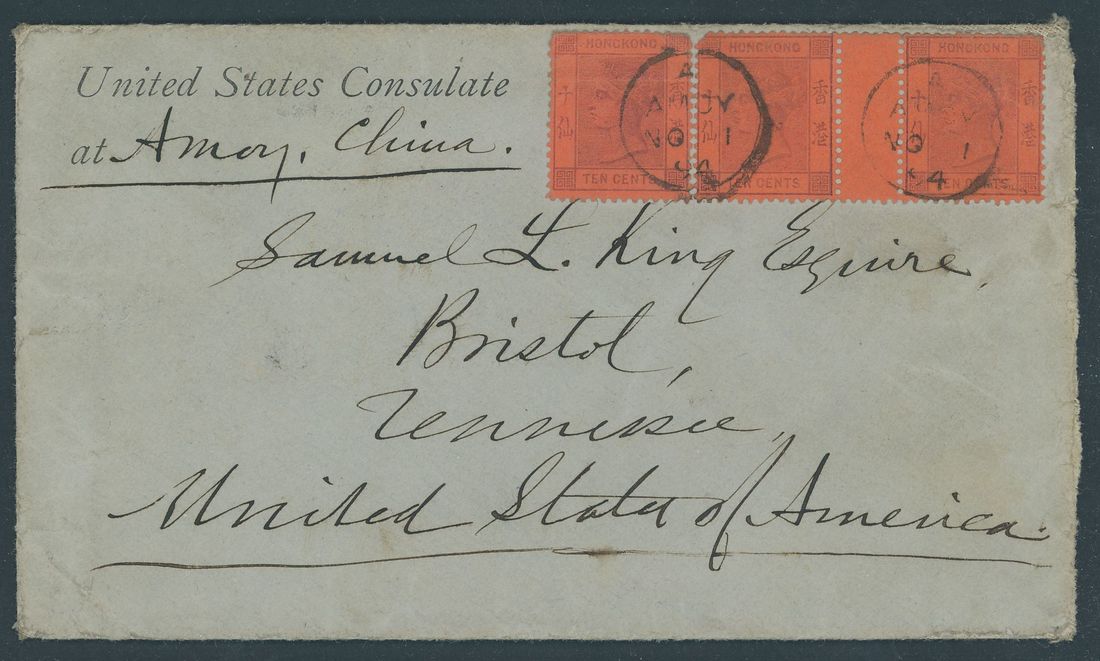 United States Consulate
at Amoy, China.
HONGKONG HONGKONG HONGKONG
十仙 香港 香港 香港
TEN CENTS TEN CENTS TEN CENTS
A
AMOY
NO 1
94
A
AMOY
NO 1
94
Samuel L. King Esquire,
Bristol,
Tennessee,
United States of America.